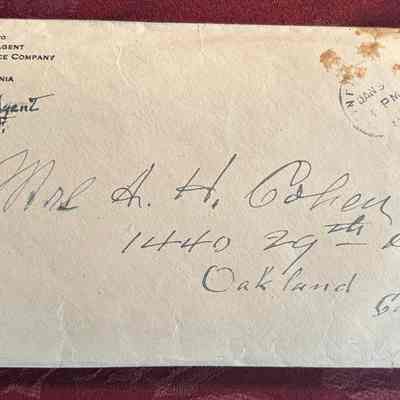 TO
AGENT
CE COMPANY
NIA
Agent
JAN 9
PM
Mrs A. H. Cohen
1440 29th
Oakland
Ca